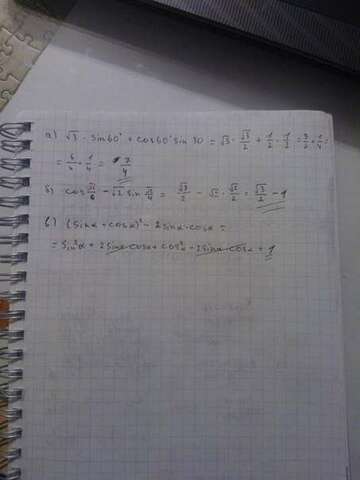 а) √3 · sin60° + cos60° sin 30 = √3 · √3/2 + 1/2 · 1/2 = 3/2 + 1/4 =
= 6/4 + 1/4 = 7/4
б) cos π/6 − √2 sin π/4 = √3/2 − √2 · √2/2 = √3/2 − 1
в) (sinα + cosα)² − 2sinα·cosα =
= sin²α + 2sinα·cosα + cos²α − 2sinα·cosα = 1